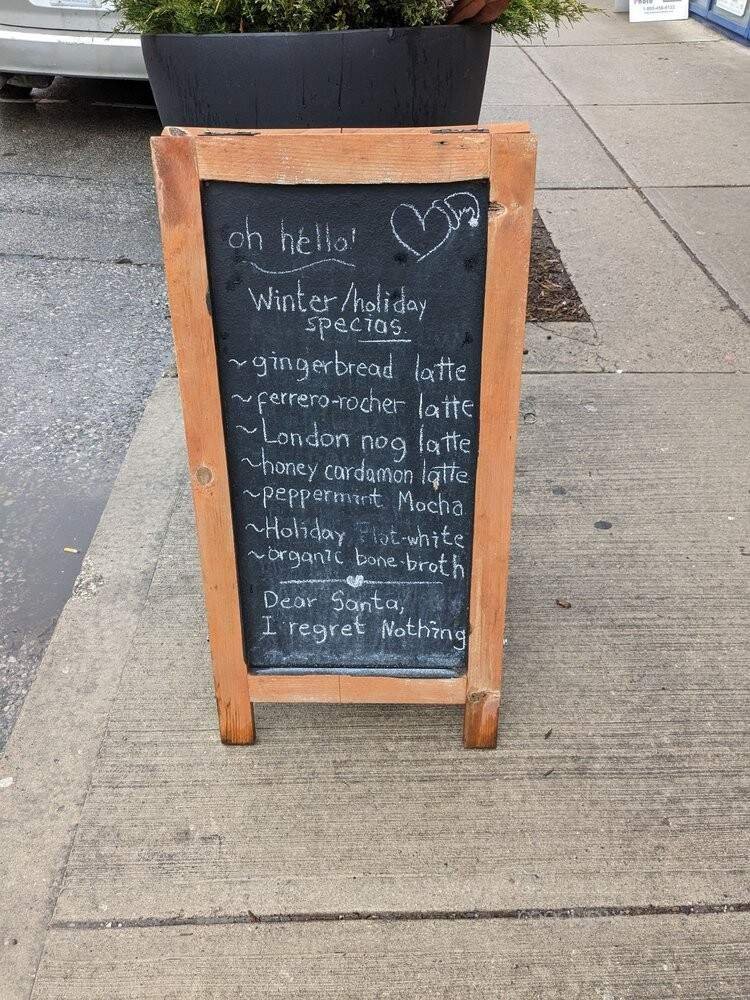 oh hello!
Winter/holiday
specias.
~gingerbread latte
~ferrero-rocher latte
~London nog latte
~honey cardamon latte
~peppermint Mocha
~Holiday Flat-white
~organic bone-broth
Dear Santa,
I regret Nothing